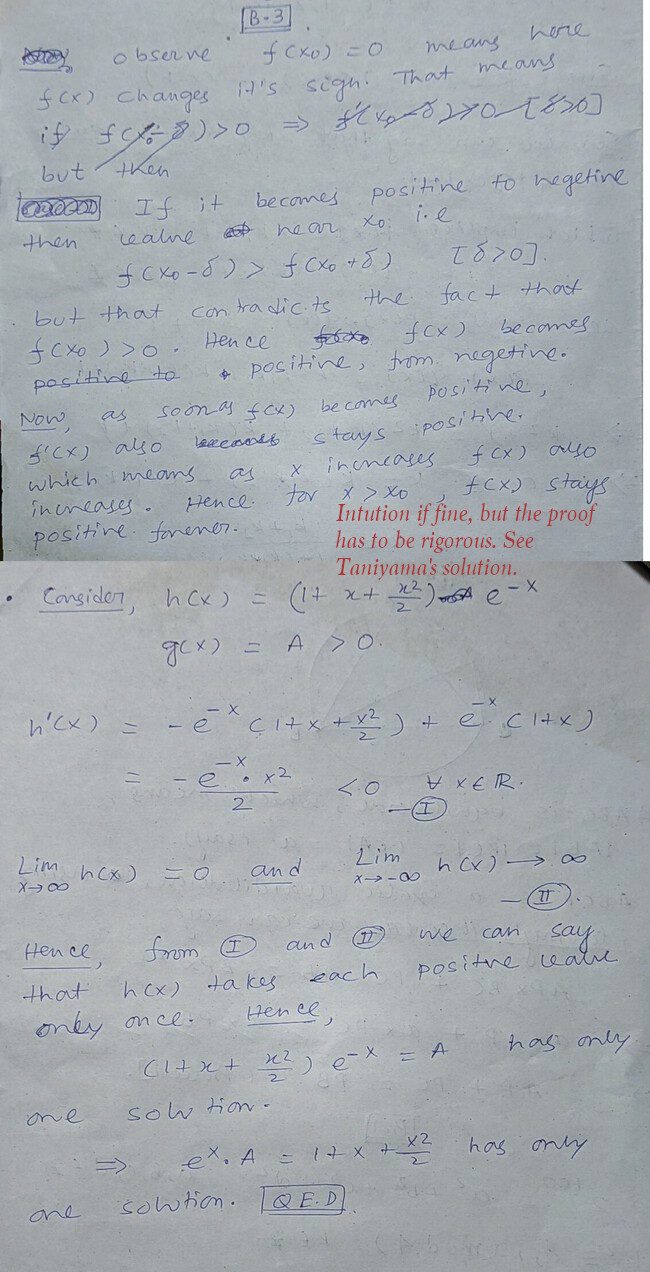 B-3
observe f(x0) = 0 means here
f(x) changes it's sign. That means
if f(x0-δ) > 0 ⇒ f'(x0-δ) > 0 [δ>0]
but then
If it becomes positive to negetive
then value near x0 i.e
f(x0-δ) > f(x0+δ) [δ>0].
but that contradicts the fact that
f(x0) > 0. Hence f(x) becomes
positive to positive, from negetive.
Now, as soon as f(x) becomes positive,
f'(x) also becomes stays positive.
which means as x increases f(x) also
increases. Hence for x > x0, f(x) stays
positive forever.
Intution if fine, but the proof
has to be rigorous. See
Taniyama's solution.
• Consider, h(x) = (1+ x + x²/2) e^-x
g(x) = A > 0.
h'(x) = -e^-x (1+x+x²/2) + e^-x (1+x)
= -e^-x · x²/2 < 0 ∀ x∈ℝ.
- I
Lim x→∞ h(x) = 0 and Lim x→-∞ h(x) → ∞
- II.
Hence, from I and II we can say
that h(x) takes each positve value
only once. Hence,
(1+x+ x²/2) e^-x = A has only
one solution.
⇒ e^x. A = 1+x+x²/2 has only
one solution. Q.E.D.